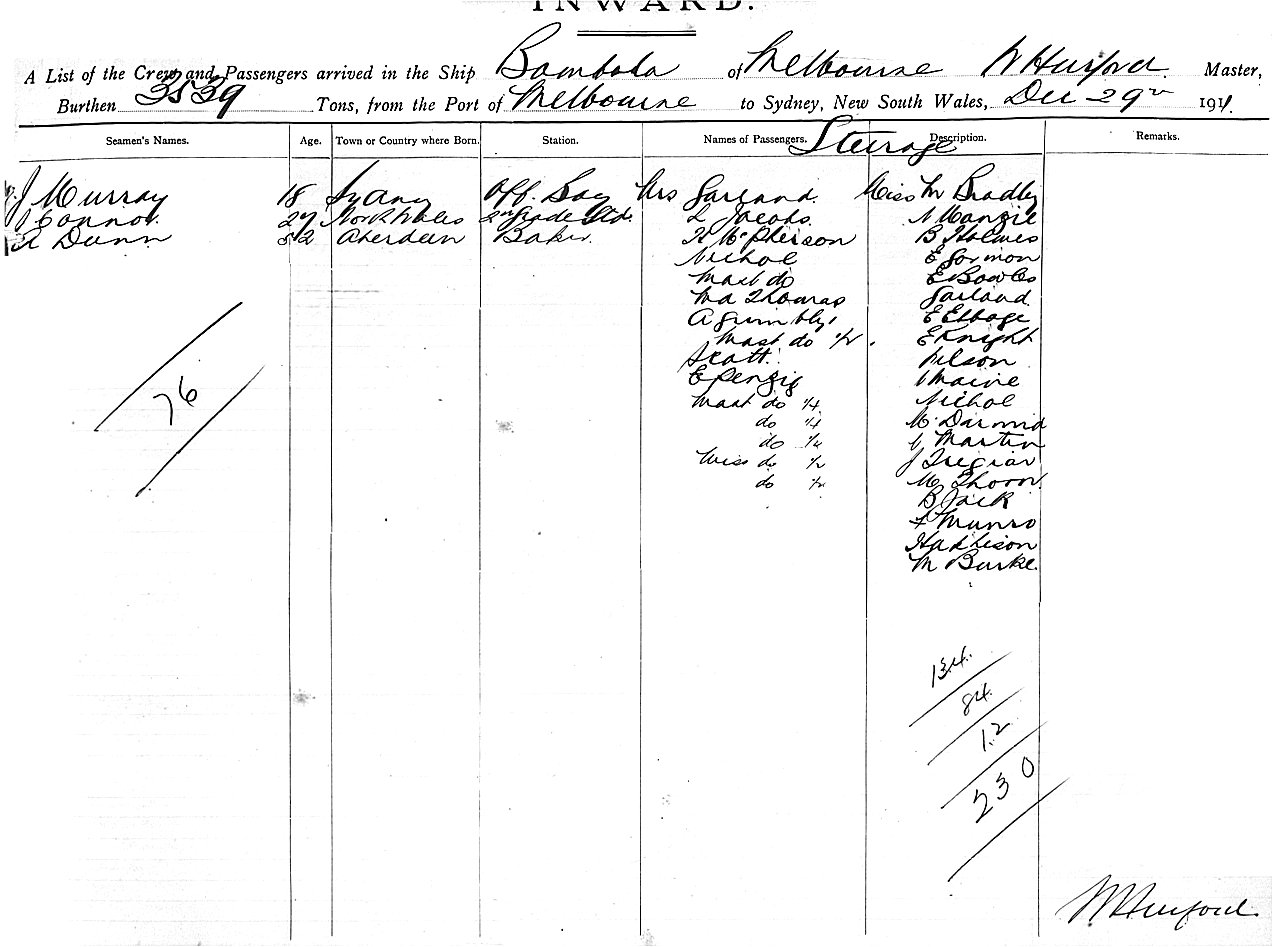 INWARD.
A List of the Crew and Passengers arrived in the Ship Bombala of Melbourne W Hurford Master,
Burthen 3539 Tons, from the Port of Melbourne to Sydney, New South Wales, Dec 29th 1911.
Seamen's Names. Age. Town or Country where Born. Station. Names of Passengers. Steerage Description. Remarks.
J Murray 18 Sydney Off. Boy Mrs Garland Miss M Bradley
J Connor 27 North Wales 2nd Grade Std. L Jacobs N Manzie
A Dunn 52 Aberdeen Baker. McPherson B Holmes
Nichol E Gormon
Mast do E Bowles
Thomas Garland
A Grimbly E Elbage
Mast do 1/2 E Knight
Scott Nelson
E Penzig Maine
Mast do 1/4 Nichol
do 1/4 McDarmid
do 1/4 Martin
Miss do 1/2 J Tregiar
do 1/2 M Thorn
B Jack
Munro
M Burke.
76
134
84
12
230
W Hurford